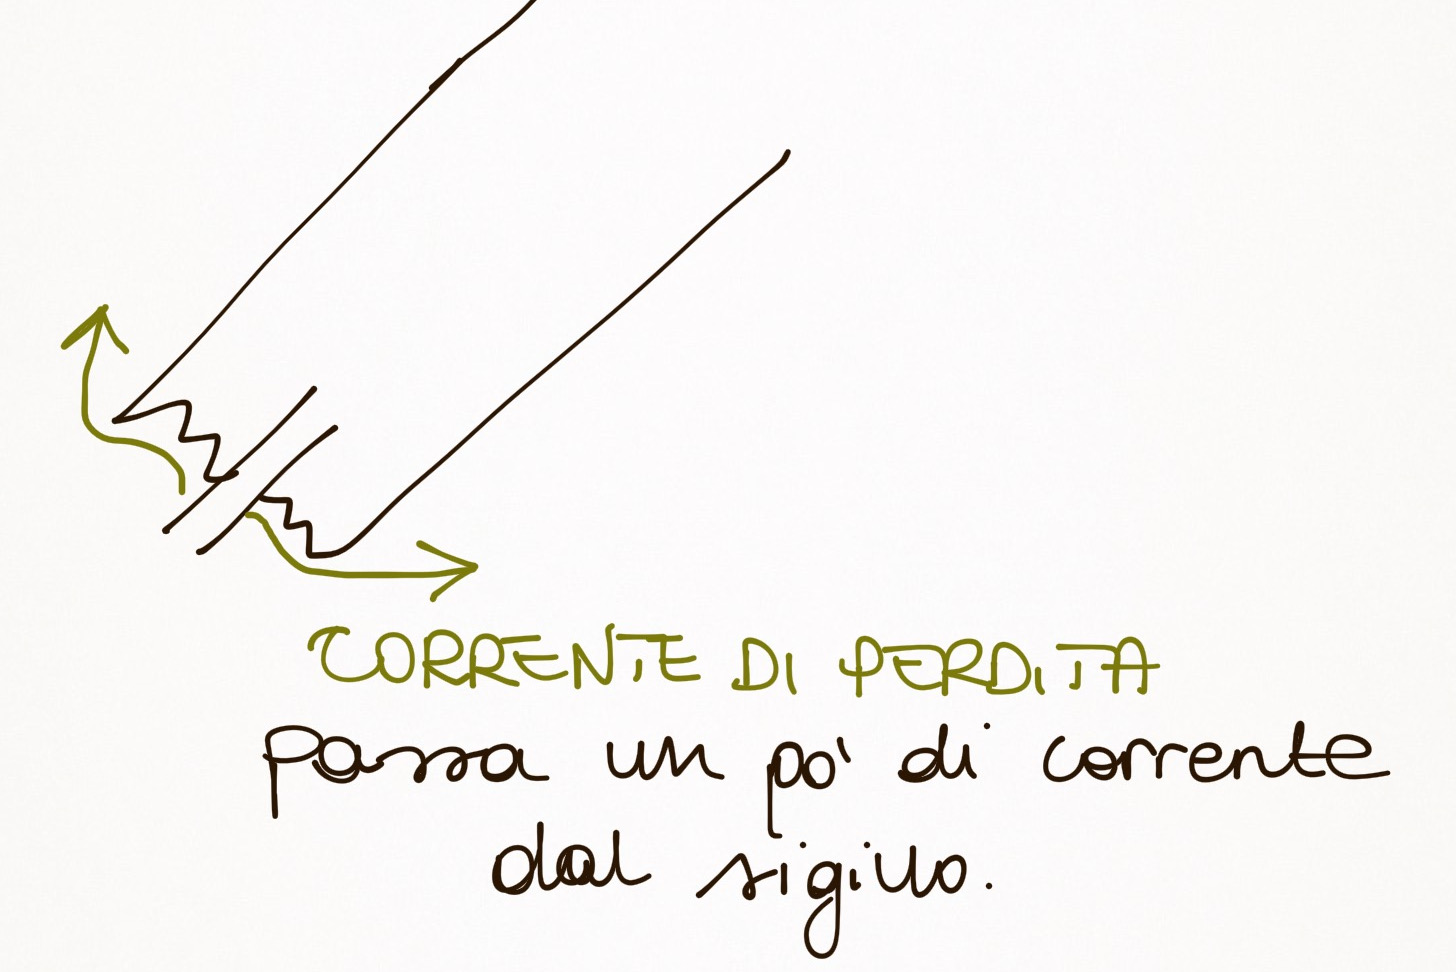 CORRENTE DI PERDITA
passa un po' di corrente
dal sigillo.